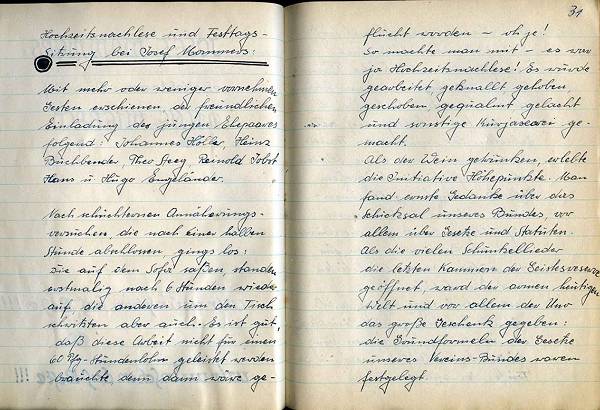 Hochzeitsnachlese und Festtags-
Sitzung bei Josef Mommers:
Mit mehr oder weniger vornehmen
Gesten erschienen der freundlichen
Einladung des jungen Ehepaares
folgend: Johannes Höller, Heinz
Büchbender, Theo Steeg, Reinold Jobst
Hans u. Hugo Engeländer.
Nach schüchternen Annäherungs-
versuchen die nach einer halben
Stunde abschlossen gings los:
Die auf dem Sofa saßen, standen
erstmalig nach 6 Stunden wieder
auf, die anderen um den Tisch
schwitzten aber auch. Es ist gut,
daß diese Arbeit nicht für einen
60 Pfg-Stundenlohn geleistet werden
brauchte denn dann wäre ge-
31
flucht worden - oh je!
So machte man mit - es war
ja Hochzeitsnachlese! Es wurde
gearbeitet geknallt gehoben,
geschoben, gequalmt gelacht
und sonstige ge-
macht.
Als der Wein getrunken, erlebte
die Initiative Höhepunkte. Man
fand ernste Gedanken über das
Schicksal unseres Bundes, vor
allem über Gesetze und Statuten.
Als die vielen Schunkellieder
die letzten Kammern der Geistesreserve
geöffnet, ward der armen heutigen
Welt und vor allem der
das große Geschenk gegeben:
die Grundformeln der Gesetze
unseres Vereins-Bundes waren
festgelegt.